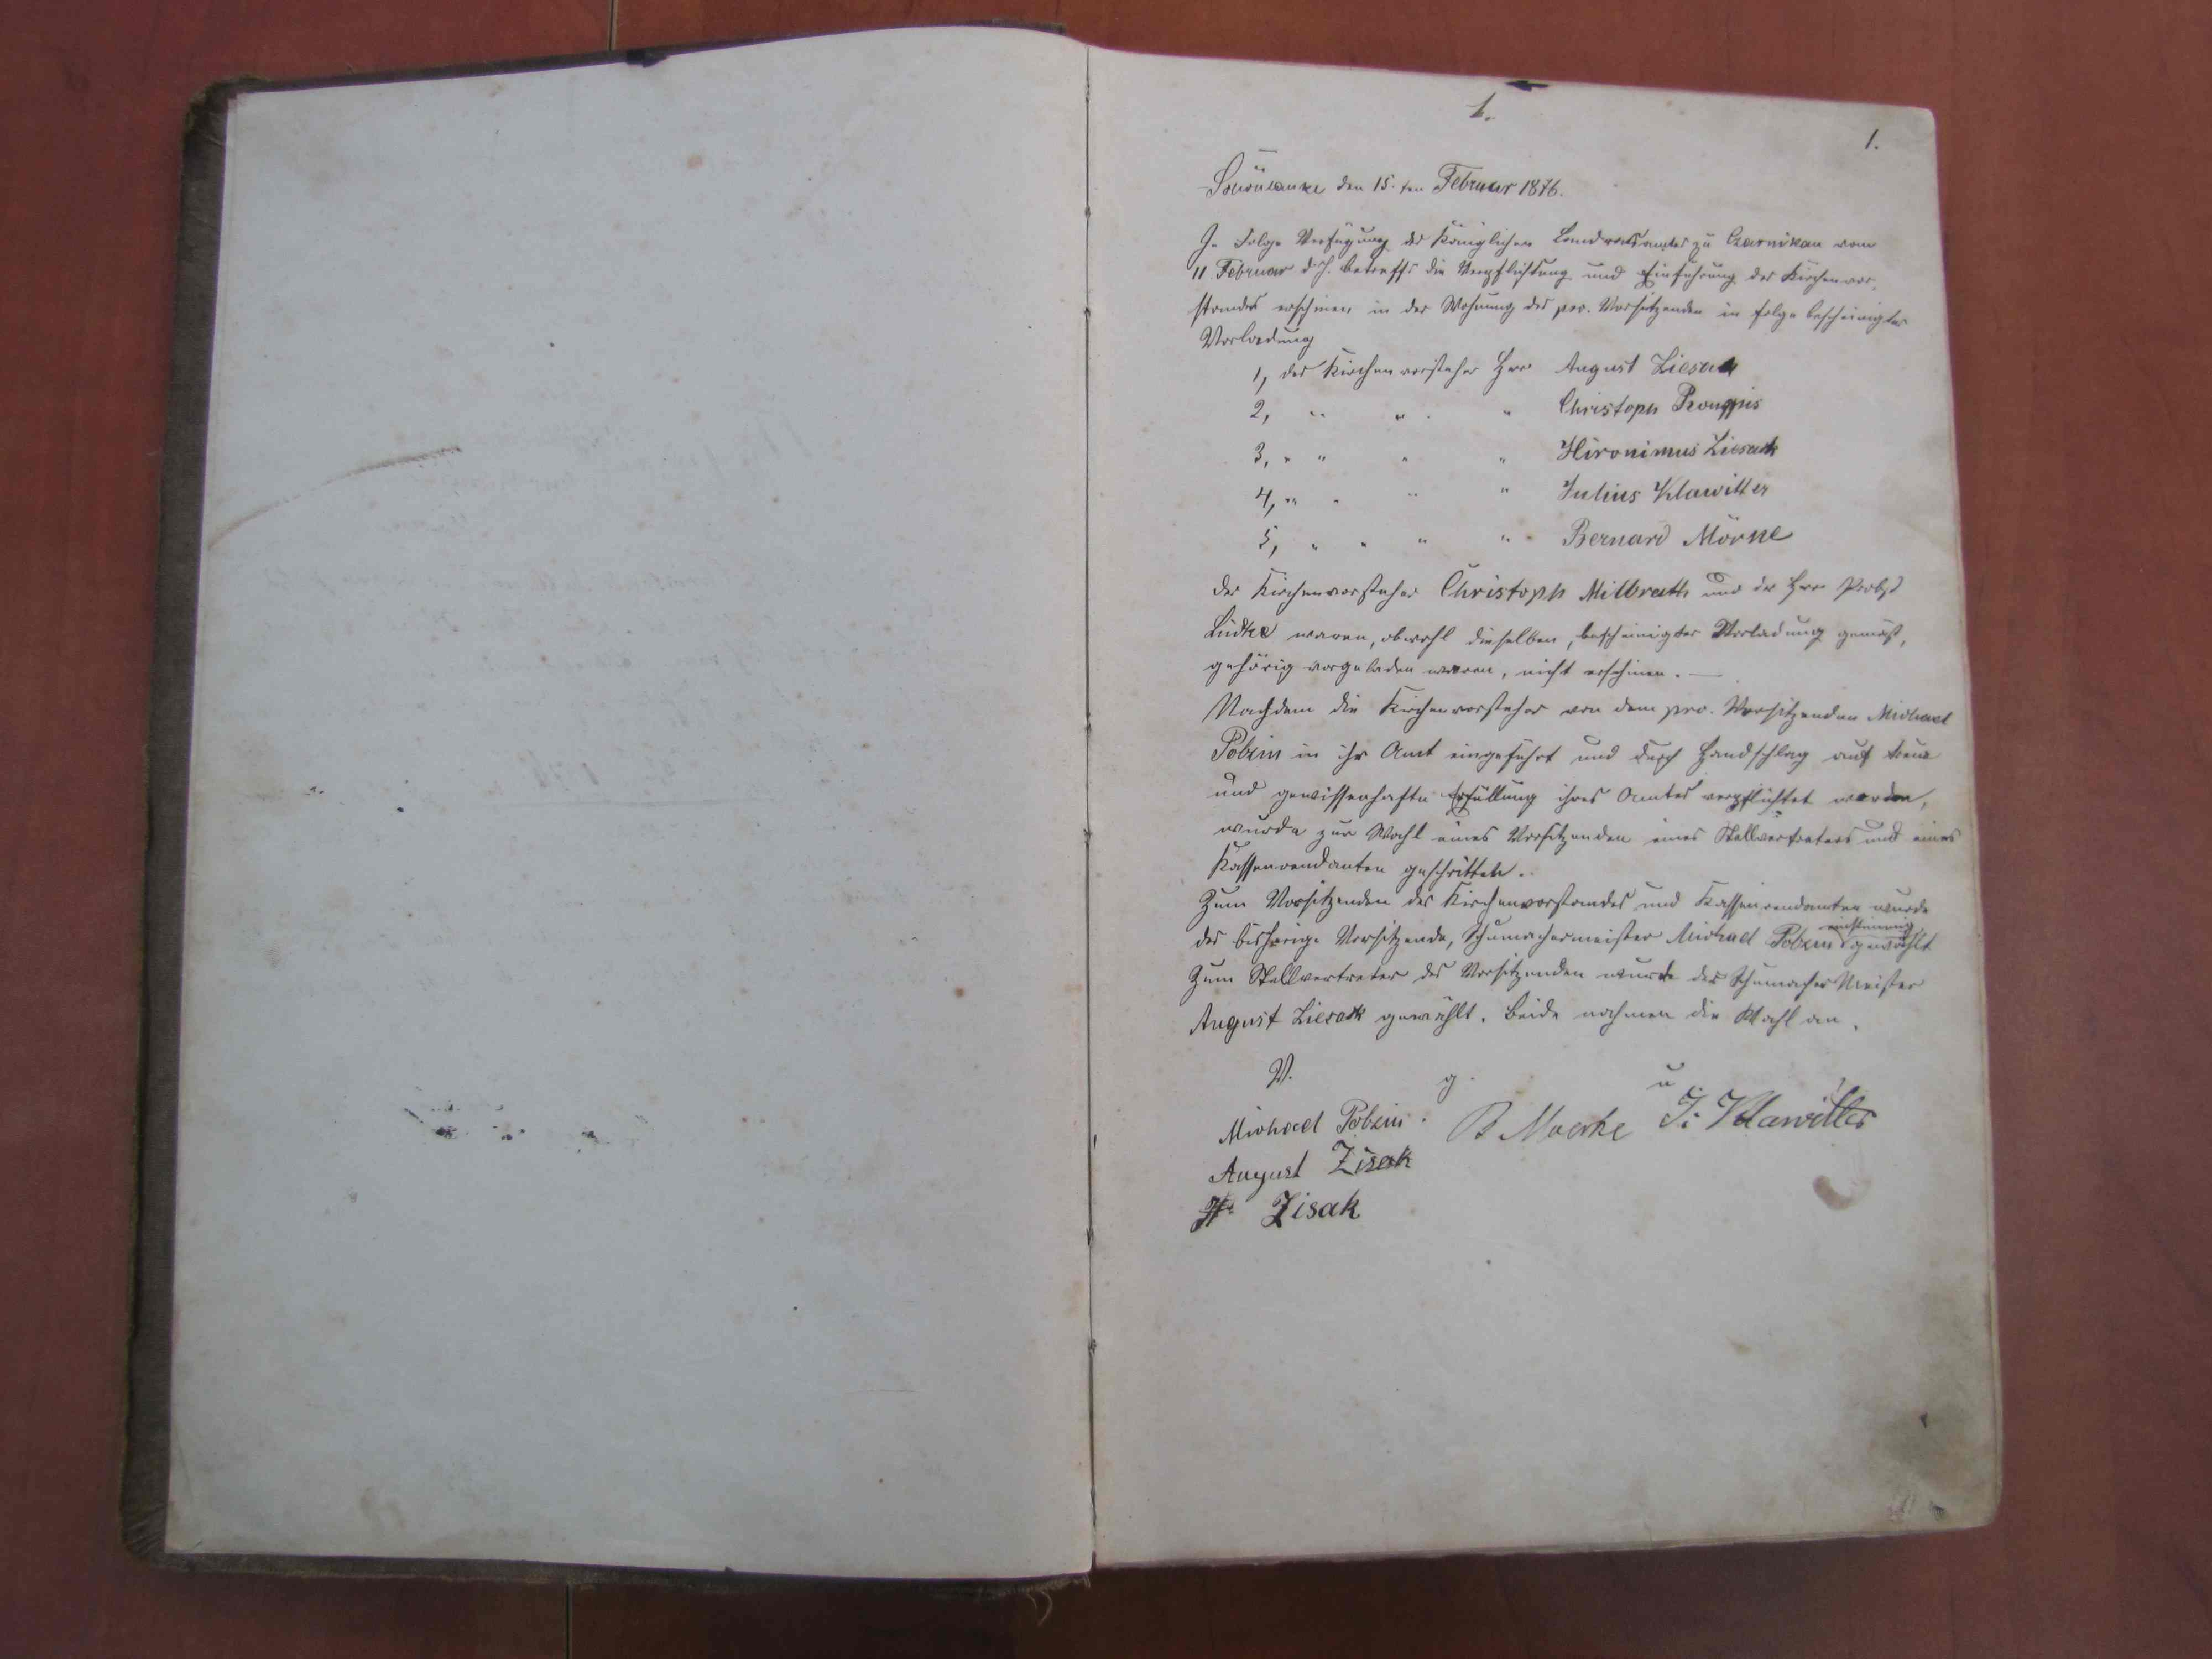 1.
1.
Schönlanke den 15. ten Februar 1876.
In Folge Verfügung des Königlichen Landrathsamtes zu Czarnikau vom
11 Februar d. J. betreffs die Verpflichtung und Einführung des Kirchenvor-
standes erschienen in der Wohnung des pro. Vorsitzenden in folge bescheinigter
Vorladung
1, der Kirchenvorsteher Herr August Liesack
2, " " " Christoph
3, " " " " Hironimus Liesack
4, " " " " Julius Klawitter
5, " " " " Bernard
der Kirchenvorsteher Christoph Milbrath und der Herr Probst
Lüdke waren, obwohl dieselben, bescheinigter Vorladung gemäß,
gehörig vorgeladen waren, nicht erschienen. —
Nachdem die Kirchenvorsteher von dem pro. Vorsitzenden Michael
Pobzin in ihr Amt eingeführt und durch Handschlag auf treue
und gewissenhafte Erfüllung ihres Amtes verpflichtet worden,
wurde zur Wahl eines Vorsitzenden eines Stellvertreters und eines
Kassenrendanten geschritten.
Zum Vorsitzenden des Kirchenvorstandes und Kassenrendanten wurde
der bisherige Vorsitzende, Schumachermeister Michael Pobzin einstimmig gewählt
Zum Stellvertreter des Vorsitzenden wurde der Schumacher Meister
August Liesack gewählt. Beide nahmen die Wahl an.
V. g. u
Michael Pobzin. B J. Klawitter
August Zisak
H. Zisak